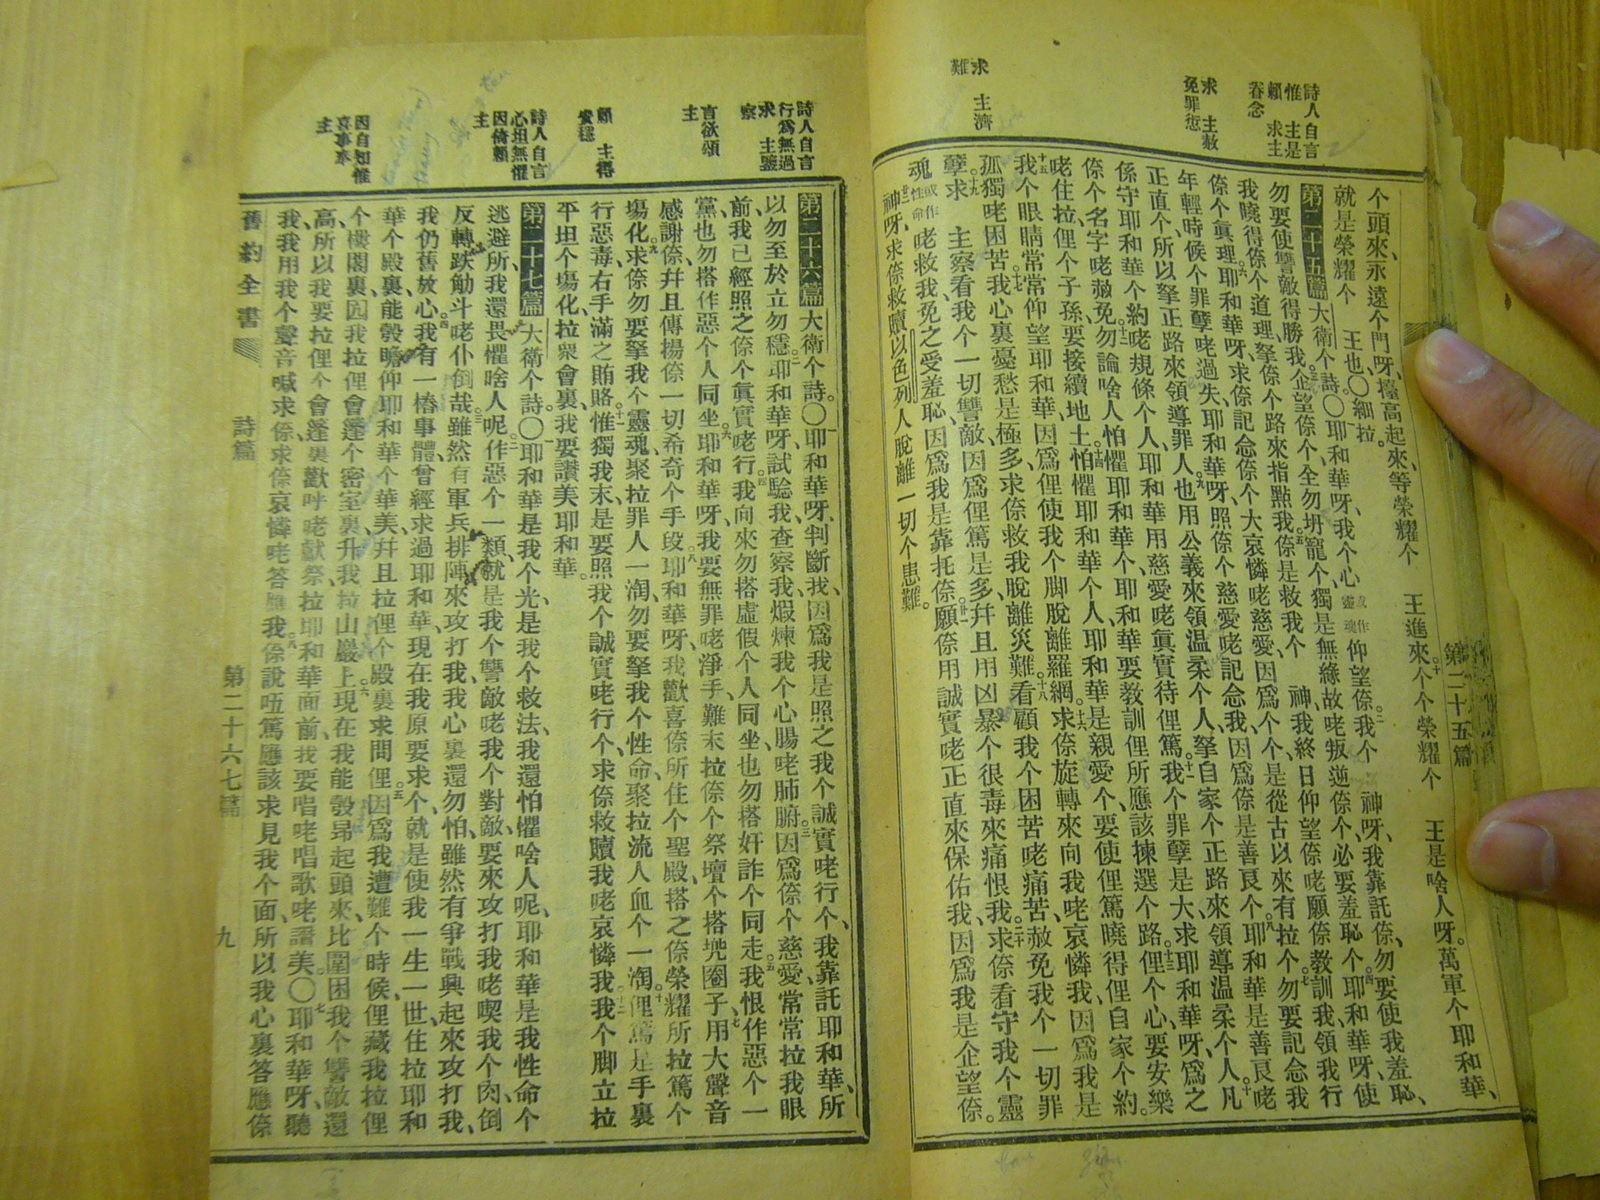 詩人自言
惟 主是
賴 求主
眷念
求 主赦
免罪愆
求 主濟
難
第二十五篇
个頭來、永遠个門呀、擡高起來、等榮耀个 王進來、个个榮耀个 王是啥人呀。萬軍个耶和華、
就是榮耀个 王也、〇細拉。
第二十五篇 大衛个詩。〇耶和華呀、我个心或作靈魂仰望倷、我个 神呀、我靠託倷、勿要使我羞恥、
勿要使讐敵得勝我、企望倷个、全勿坍寵个、獨是無緣故咾叛逆倷个、必要羞恥个、耶和華呀、使
我曉得倷个道理、拏倷个路來指點我、倷是救我个 神、我終日仰望倷咾、願倷教訓我、領我行
倷个眞理、耶和華呀、求倷記念倷个大哀憐咾慈愛、因爲个个是從古以來有拉个、勿要記念我
年輕時候个罪孽咾過失、耶和華呀、照倷个慈愛咾記念我、因爲倷是善良个、耶和華是善良咾
正直个、所以拏正路來領導罪人、也用公義來領溫柔个人、拏自家个正路來領導溫柔个人、凡
係守耶和華个約咾規條个人、耶和華用慈愛咾眞實待俚篤、我个罪孽是大、求耶和華呀、爲之
倷个名字咾赦免、勿論啥人、怕懼耶和華个、耶和華要教訓俚所應該揀選个路、俚个心要安樂
咾住拉、俚个子孫要接續地土、怕懼耶和華个人、耶和華是親愛个、要使俚篤曉得俚自家个約。
我个眼睛常常仰望耶和華、因爲俚使我个脚脫離羅網、求倷旋轉來向我咾哀憐我、因爲我是
孤獨咾困苦、我心裏憂愁是極多、求倷救我脫離災難、看顧我个困苦咾痛苦、赦免我个一切罪
孽、求 主察看我个一切讐敵、因爲俚篤是多、幷且用凶暴个很毒來痛恨我、求倷看守我个靈
魂或作性命咾救我、免之受羞恥、因爲我是靠托倷、願倷用誠實咾正直來保佑我、因爲我是企望倷。
神呀、求倷救贖以色列人脫離一切个患難。
詩人自言
行爲無過
求 主鑒
察
言欲頌
主
賴 主得
安穩
詩人自言
心坦無懼
因倚賴
主
因自知惟
喜事奉
主
第二十六篇 大衛个詩。〇耶和華呀、判斷我、因爲我是照之我个誠實咾行个、我靠託耶和華、所
以勿至於立勿穩、耶和華呀、試驗我、查察我、煆煉我个心腸咾肺腑、因爲倷个慈愛、常常拉我眼
前、我已經照之倷个眞實咾行、我向來勿搭虛假个人同坐、也勿搭奸詐个同走、我恨作惡个一
黨、也勿搭作惡个人同坐、耶和華呀、我要無罪咾淨手、難末拉倷个祭壇个搭兜圈子、用大聲音
感謝倷、幷且傳揚倷一切希奇个手段、耶和華呀、我歡喜倷所住个聖殿、搭之倷榮耀所拉篤个
塲化、求倷勿要拏我个靈魂聚拉罪人一淘、勿要拏我个性命聚拉流人血个一淘、俚篤是手裏
行惡毒、右手滿之賄賂、惟獨我末、是要照我个誠實咾行个、求倷救贖我咾哀憐我、我个脚立拉
平坦个塲化、拉衆會裏、我要讃美耶和華。
第二十七篇 大衛个詩。〇耶和華是我个光、是我个救法、我還怕懼啥人呢、耶和華是我性命个
逃避所、我還畏懼啥人呢、作惡个一類、就是我个讐敵咾我个對敵、要來攻打我咾喫我个肉、倒
反轉跌觔斗咾仆倒哉、雖然有軍兵排陣來攻打我、我心裏還勿怕、雖然有爭戰興起來攻打我、
我仍舊放心、我有一樁事體、曾經求過耶和華、現在我原要求个、就是使我一生一世住拉耶和
華个殿裏、能彀瞻仰耶和華个華美、幷且拉俚个殿裏求問俚、因爲我遭難个時候、俚藏我拉俚
个樓閣裏、园我拉俚會篷个密室裏、升我拉山巖上、現在我能彀昂起頭來、比圍困我个讐敵還
高、所以我要拉俚个會篷裏歡呼咾獻祭、拉耶和華面前、我要唱咾唱歌咾讃美。〇耶和華呀、聽
我、我用我个聲音喊求倷、求倷哀憐咾答應我、倷說、唔篤應該求見我个面、所以我心裏答應倷
舊約全書
詩篇
第二十六七篇
九